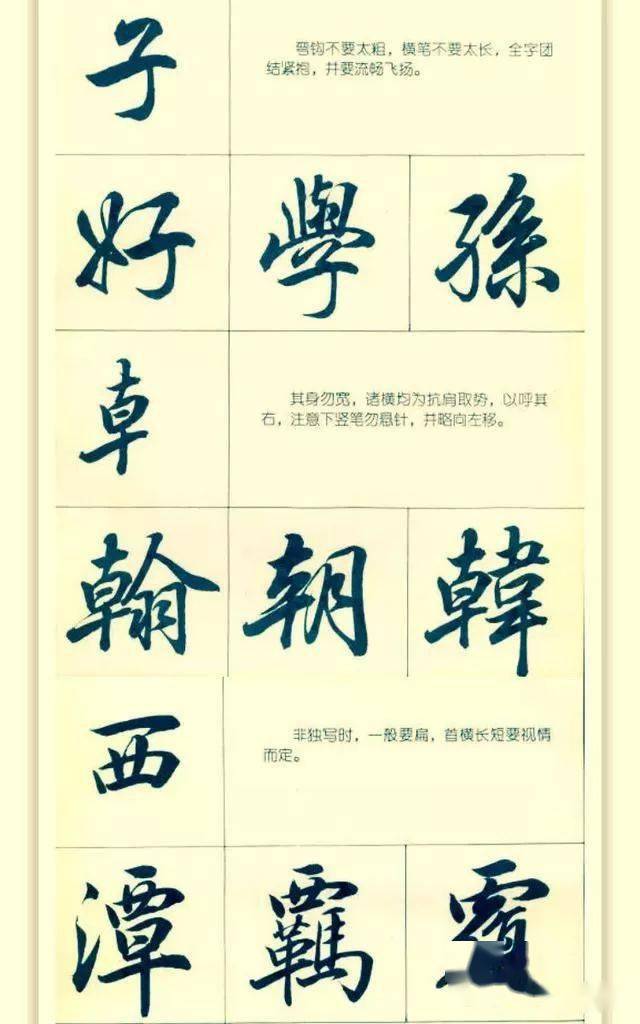 子
弯钩不要太粗，横笔不要太长，全字团
结紧抱，并要流畅飞扬。
好 學 孫
卓
其身勿宽，诸横均为抗肩取势，以呼其
右，注意下竖笔勿悬针，并略向左移。
翰 朝 韓
西
非独写时，一般要扁，首横长短要视情
而定。
潭 覊